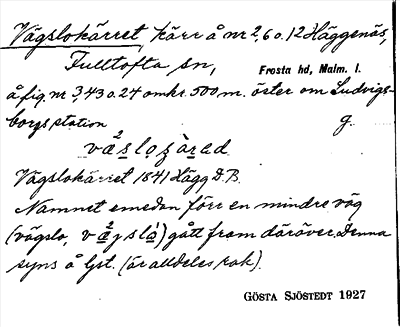 Vägslokärret, kärr å nr 2, 6 o. 12 Häggenäs,
Fulltofta sn, Frosta hd, Malm. l.
å fig. nr 3, 43 o. 24 omkr. 500 m. öster om Ludvigs-
borgs station g.
Vägslokärret 1841 Hägg D.B.
Namnet emedan förr en mindre väg
gått fram däröver. Denna
syns å Gst. (är alldeles rak).
GÖSTA SJÖSTEDT 1927